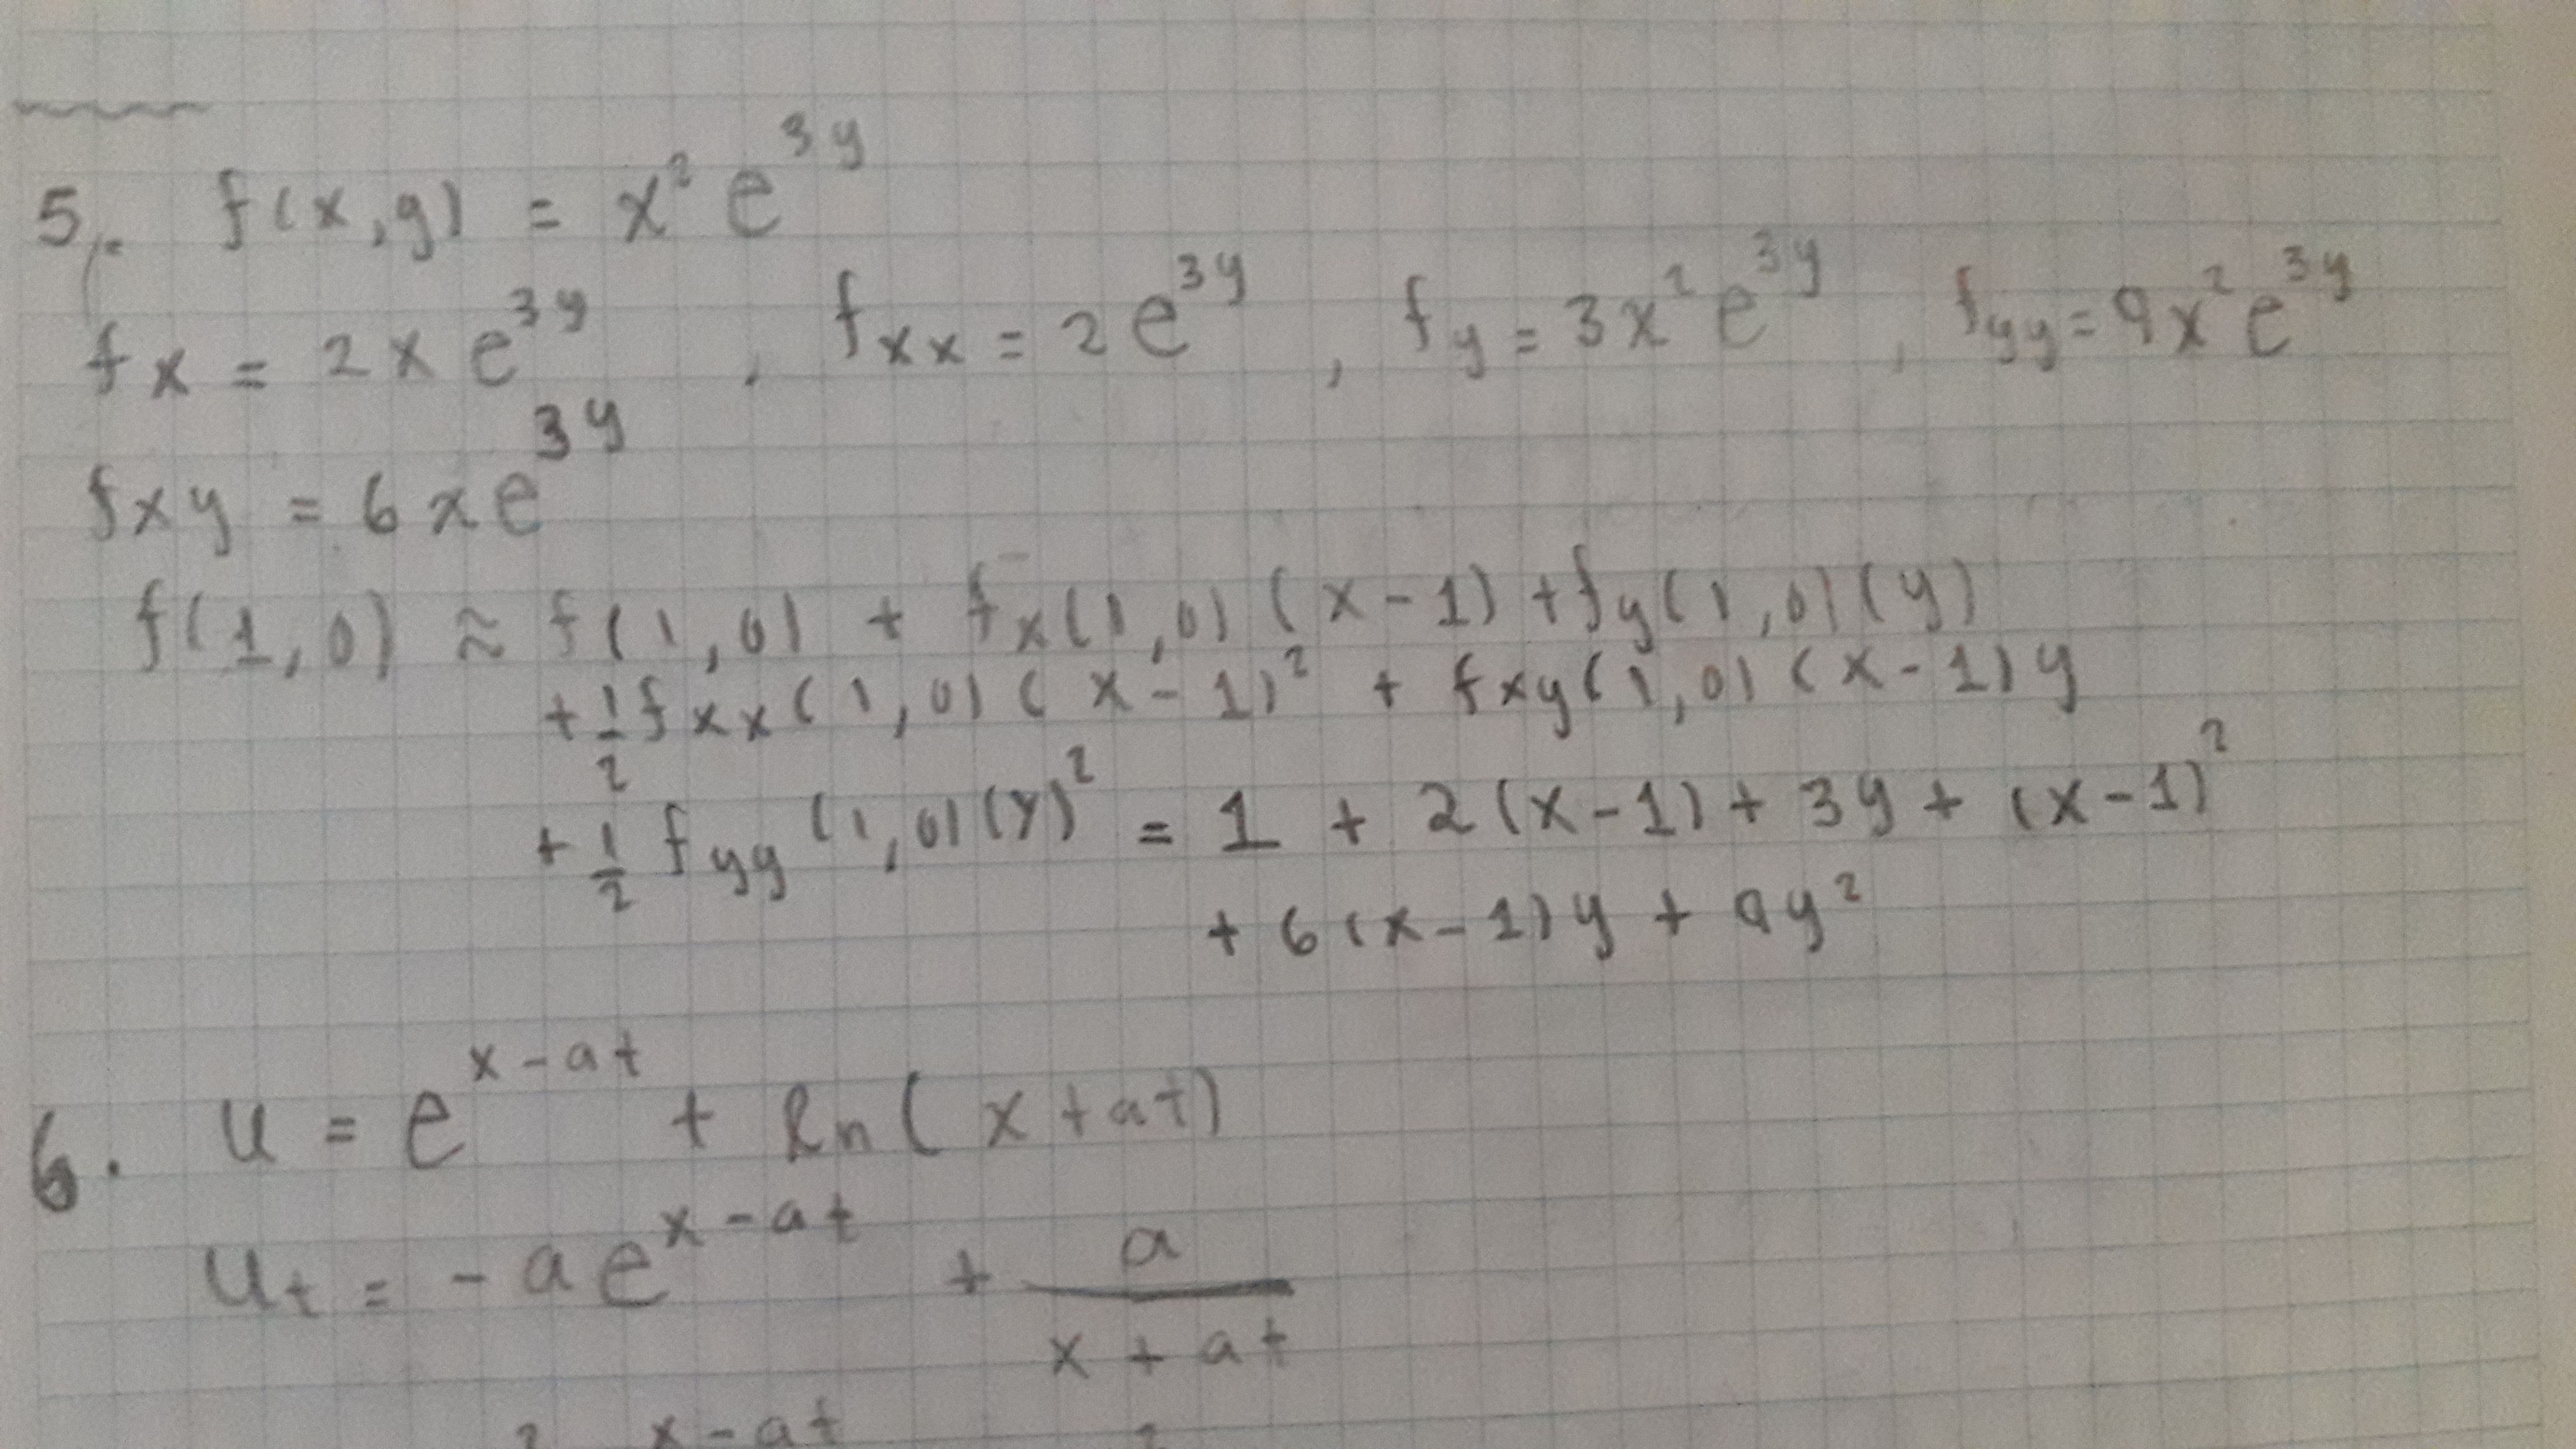 5. f(x,y) = x² e^{3y}
fx = 2x e^{3y} , fxx = 2 e^{3y} , fy = 3x² e^{3y} , fyy = 9x² e^{3y}
fxy = 6xe^{3y}
f(1,0) ≈ f(1,0) + fx(1,0)(x-1) + fy(1,0)(y)
+ 1/2 fxx(1,0)(x-1)² + fxy(1,0)(x-1)y
+ 1/2 fyy(1,0)(y)² = 1 + 2(x-1) + 3y + (x-1)²
+ 6(x-1)y + 9y²
6. u = e^{x-at} + ln(x+at)
ut = -ae^{x-at} + a/(x+at)